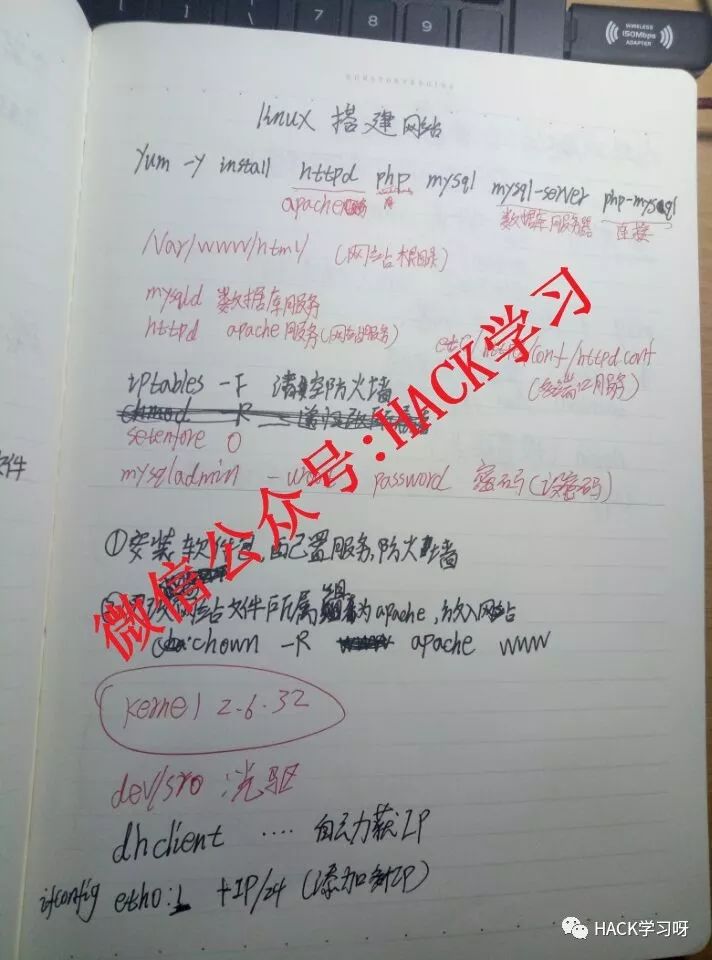 7
8
9
WIRELESS
150Mbps
ADAPTER
linux 搭建网站
yum -y install httpd php mysql mysql-server php-mysql
apache服务 数据库服务器 连接
/var/www/html/ (网站根目录)
mysqld 数据库服务
httpd apache服务(网站服务)
etc/httpd/conf/httpd.conf
(终端口服务)
iptables -F 清空防火墙
chmod -R
setenfore 0
mysqladmin -u password 密码(设密码)
①安装软件包 配置服务,防火墙
网站文件所属组为apache,放入网站
chown -R apache www
kernel 2.6.32
dev/sr0 :光驱
dhclient .... 自动获IP
ifconfig eth0:1 +IP/24 (添加多IP)
微信公众号:HACK学习
HACK学习呀